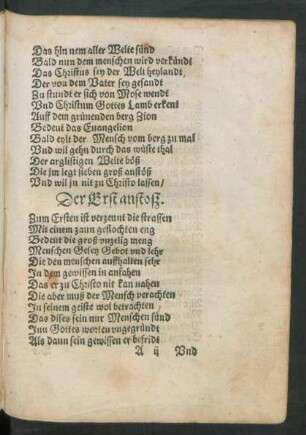 Das hin nem aller Welte sünd
Bald nun dem menschen wird verkündt
Das Christus sey der Welt heylandt,
Der von dem Vater sey gesandt
Zu stundt er sich von Mose wendt
Vnd Christum Gottes Lamb erkent
Auff dem grünenden berg Zion
Bedeut das Euangelion
Bald eylt der Mensch vom berg zu mal
Vnd wil gehn durch das wüste thal
Der arglistigen Welte böß
Die jm legt sieben groß anstöß
Vnd wil jn nit zu Christo lassen/
Der Erst anstoß.
Zum Ersten ist verzeunt die strassen
Mit einem zaun geflochten eng
Bedeut die groß vnzelig meng
Menschen Gesetz Gebot vnd lehr
Die den menschen auffhalten sehr
In dem gewissen in anfahen
Das er zu Christo nit kan nahen
Die aber muß der Mensch verachten
In seinem geiste wol betrachten
Das dises sein nur Menschen fünd
Inn Gottes worten vngegründt
Als dann sein gewissen er befridt
A ij Vnd